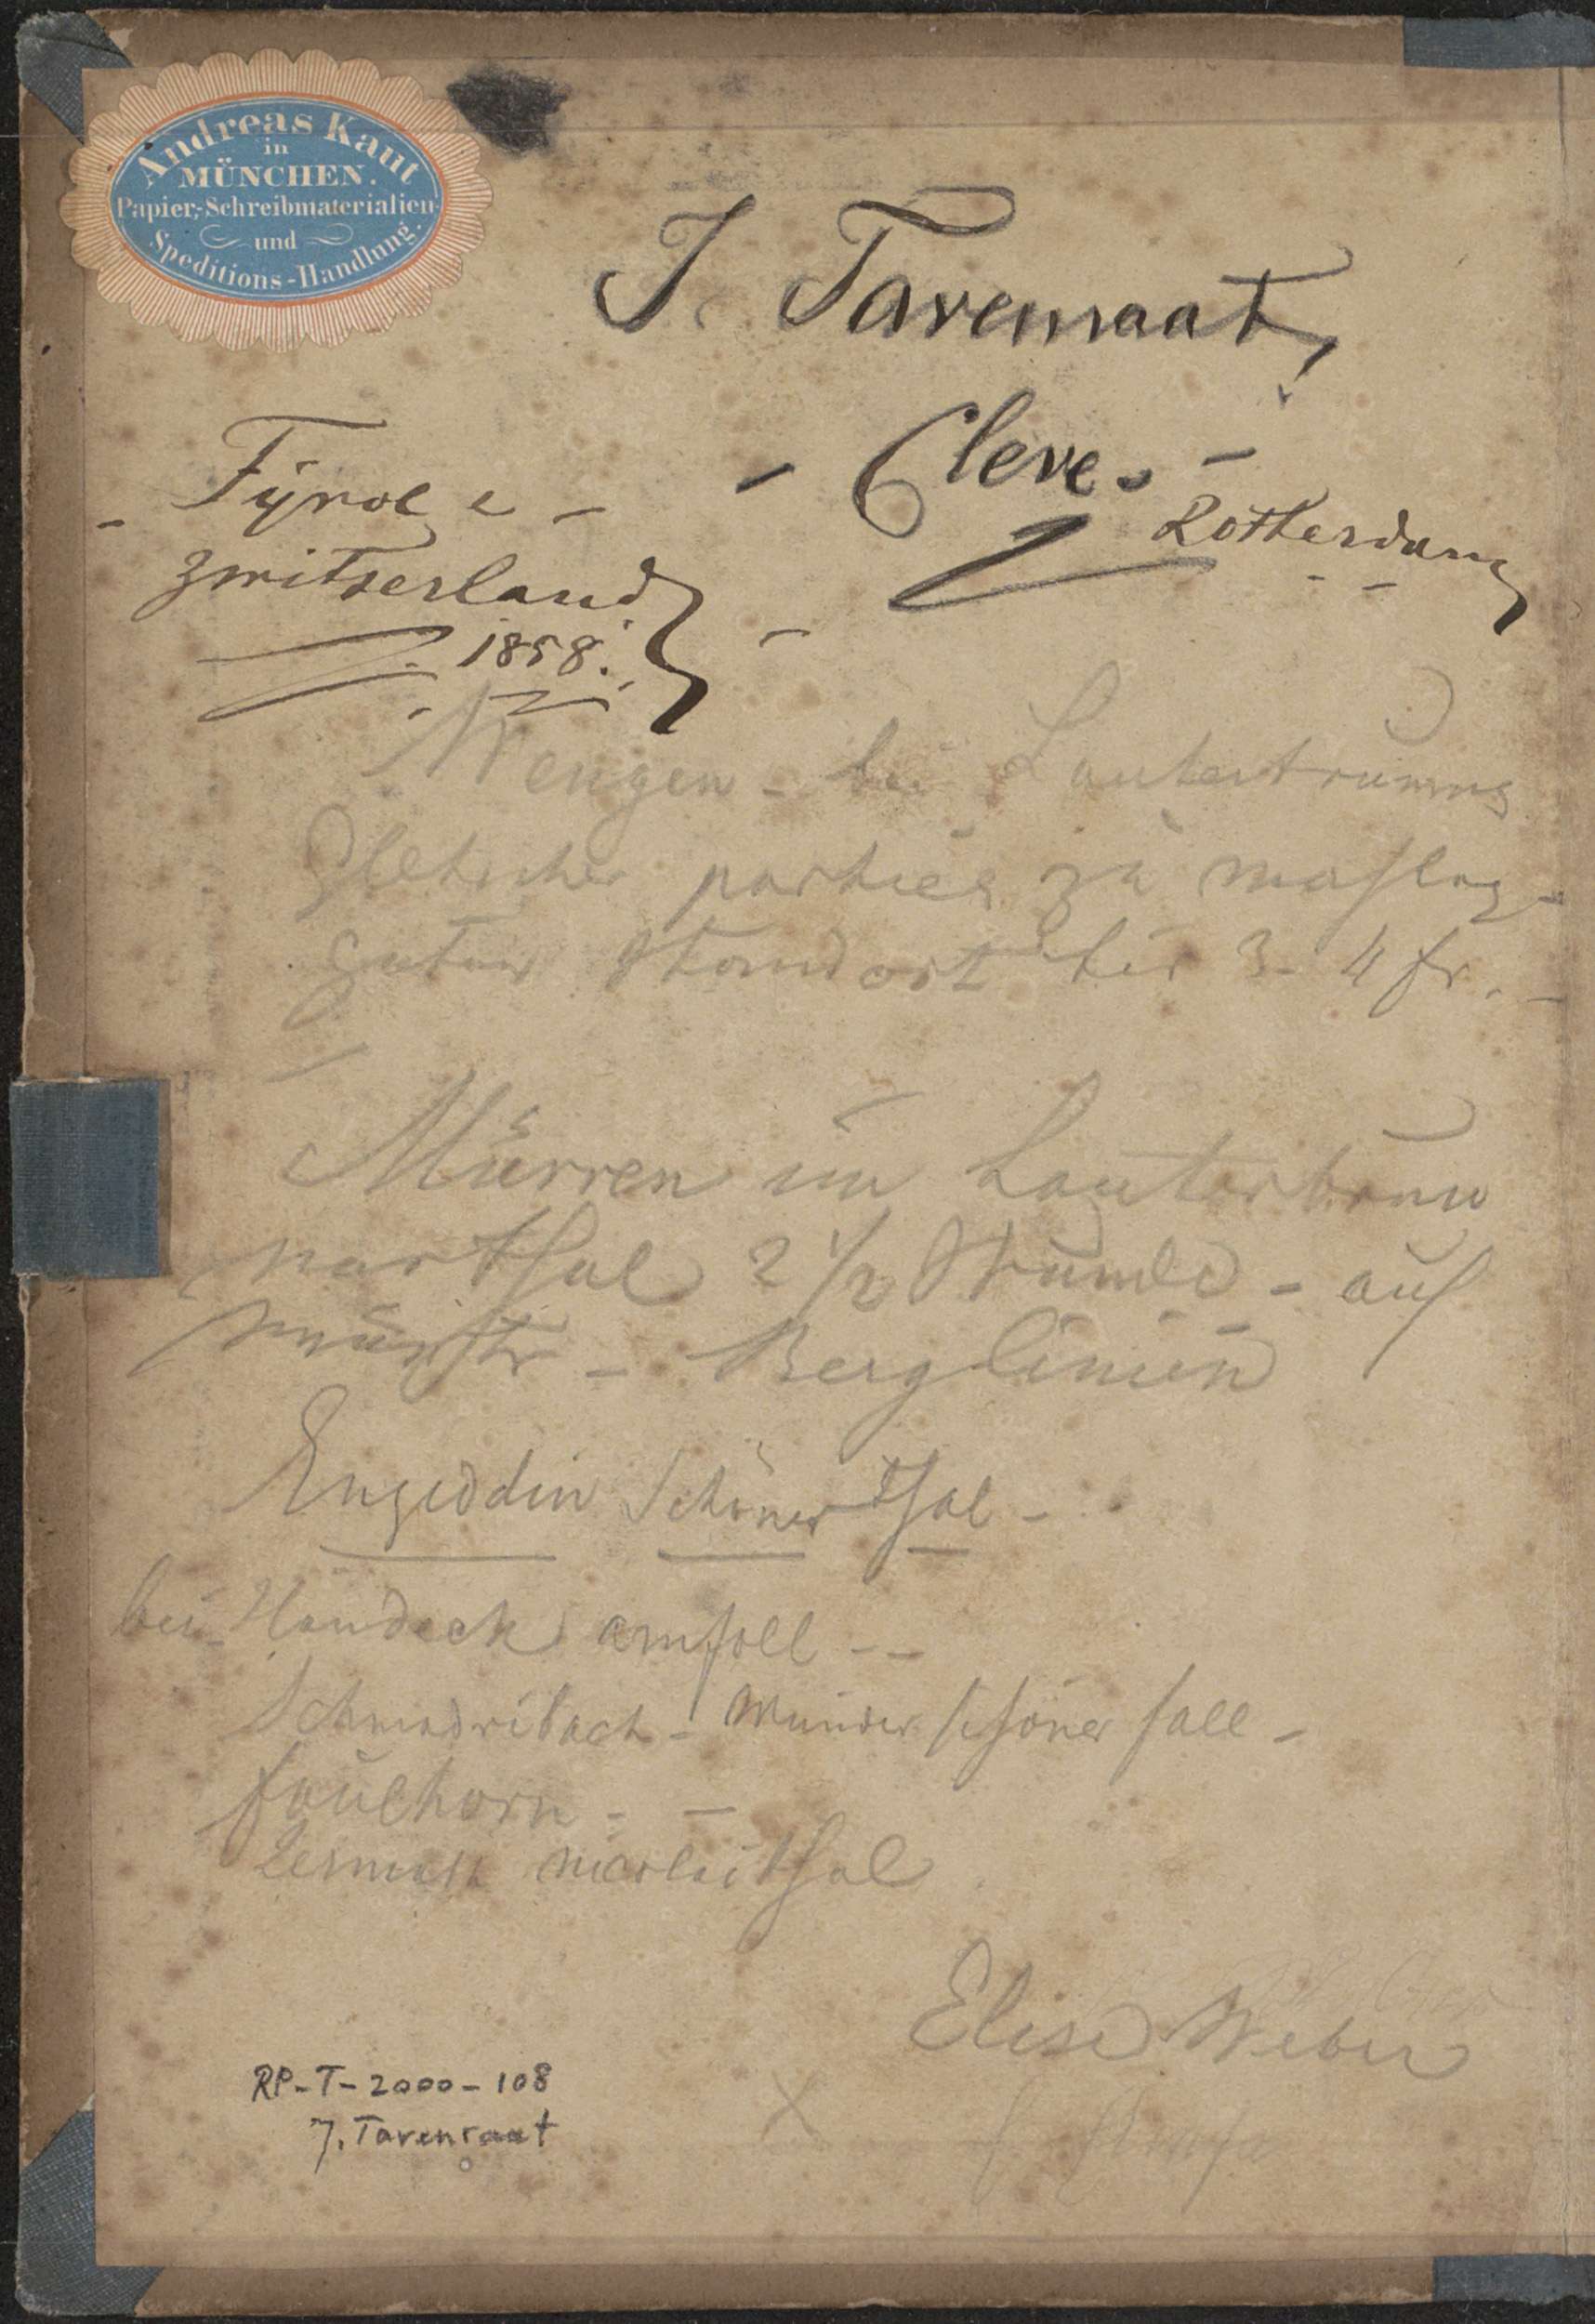 Andreas Kaut
in
MÜNCHEN.
Papier,-Schreibmaterialien-
und
Speditions-Handlung.
J. Tavenraat,
- Cleve. -
Rotterdam
- Tyrol e -
Zwitserland
1858.
Wengen - bei Lauterbrunng
Gletscher partien zu
guter Standort bei 3 - 4 fr. -
Mürren im Lauterbrun
narthal 2 1/2 Stunde - auf
- Berglinien
Engiddin Schöner thal -
bei Handeck amfall - -
Schmadribach - Wunder schöner fall -
faulhorn - -
Zermatt nicolaithal
Elise Weber
X
RP-T-2000-108
J. Tavenraat